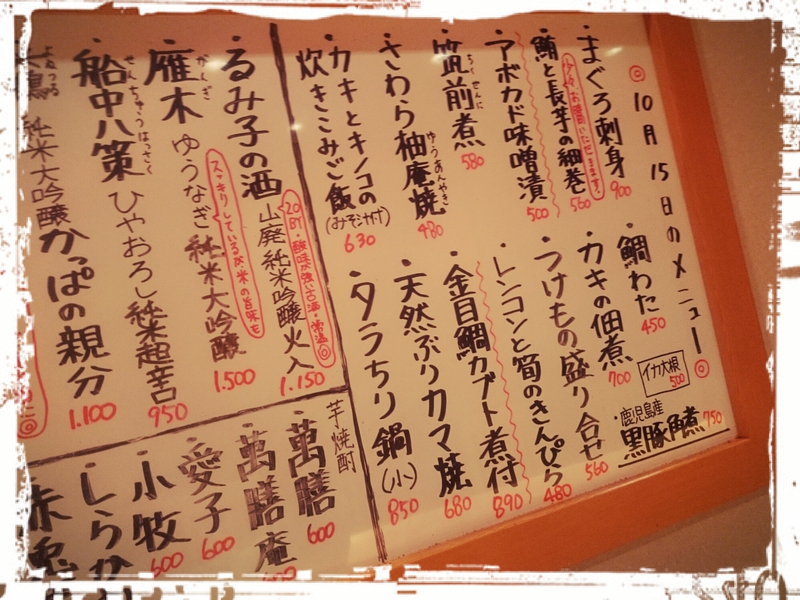 ◎10月15日のメニュー◎
・まぐろ刺身 900
・鮪と長芋の細巻 560
少々お時間いただきます。
・アボカド味噌漬 500
・筑前煮 580
ちくぜんに
・さわら柚庵焼 480
ゆうあんやき
・カキとキノコの
炊きこみご飯
(みそ汁付) 630
・鯛わた 450
・カキの佃煮 700
・つけもの盛り合せ 560
・レンコンと筍のきんぴら 480
・金目鯛カブト煮付 890
・天然ぶりカマ焼 680
・タラちり鍋(小) 850
イカ大根 500
・鹿児島産
黒豚角煮 750
・るみ子の酒 山廃純米吟醸 火入 1.150
20BY・酸味が強い古酒・常温◎
・雁木 ゆうなぎ 純米大吟醸 1.500
がんぎ
スッキリしているが米の旨味も
・船中八策 ひやおろし純米超辛口 950
せんちゅうはっさく
かっぱの親分 1.100
純米大吟醸
芋焼酎
・萬膳 600
・萬膳庵
・愛子 600
・小牧 600
・しらか
赤兎